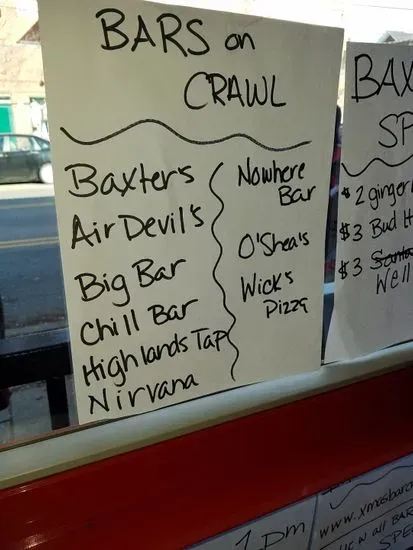 BARS on
CRAWL
Baxter's
Air Devil's
Big Bar
Chill Bar
Highlands Tap
Nirvana
Nowhere
Bar
O'Shea's
Wick's
Pizza
BAX
SP
$2 ginger
$3 Bud
$3
Well
1pm
www.xmasbarc
all BAR
SPE